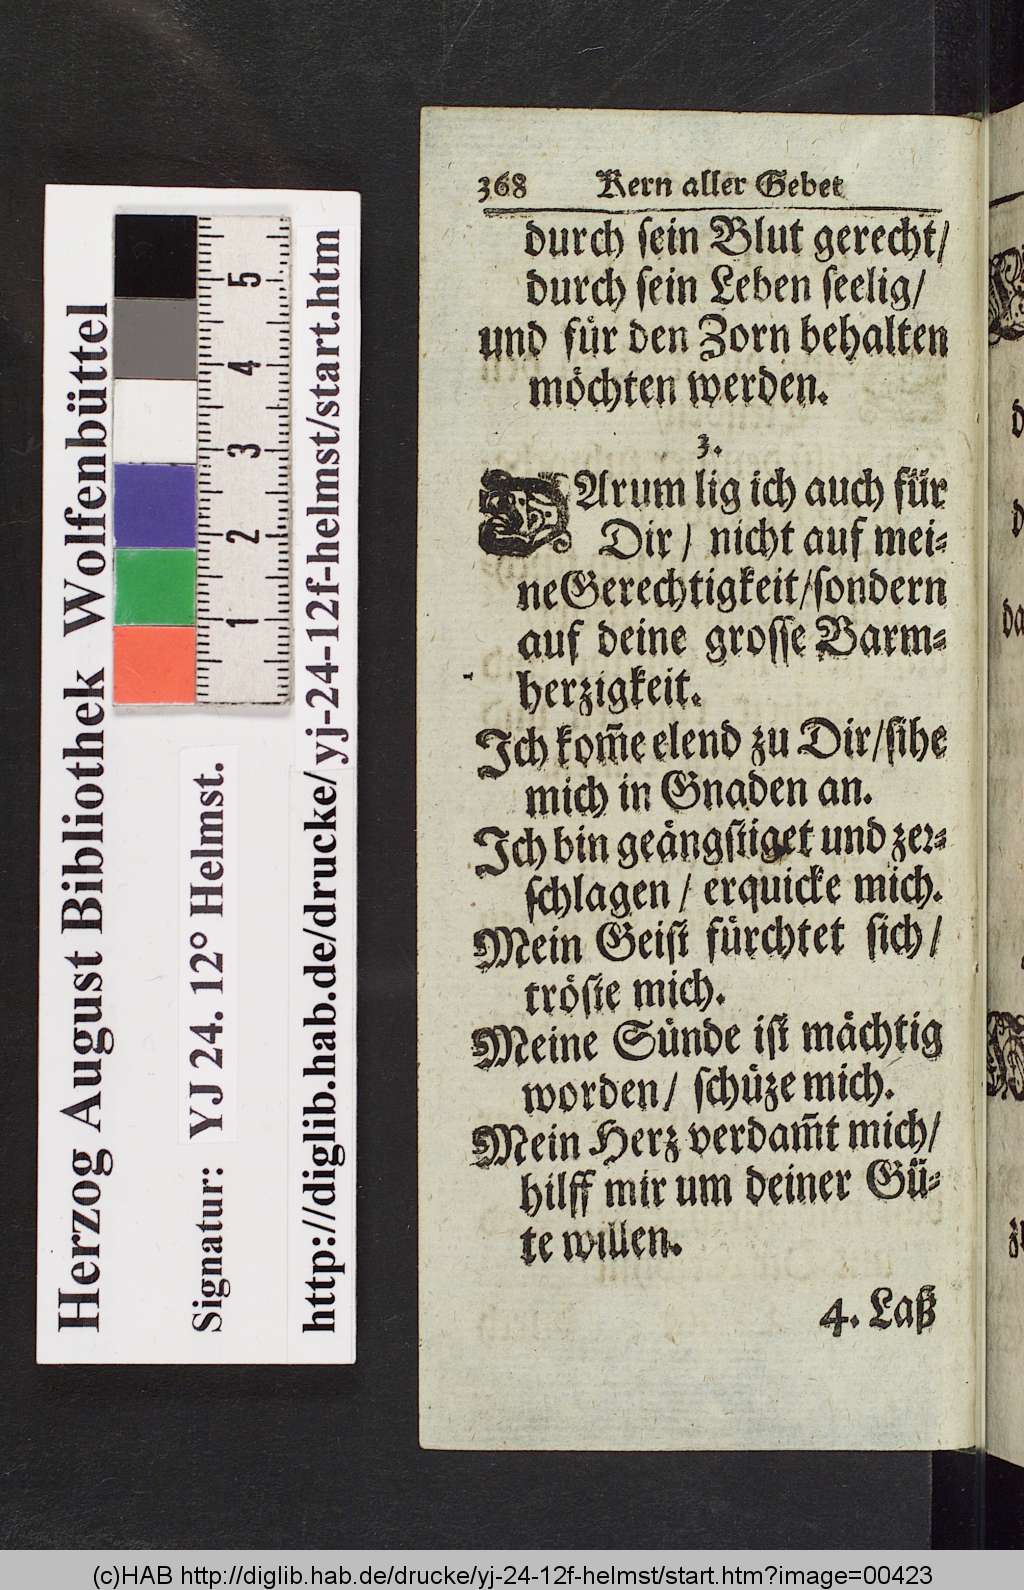 368 Kern aller Gebet
durch ſein Blut gerecht/
durch ſein Leben ſeelig/
und für den Zorn behalten
möchten werden.
3.
DArum lig ich auch für
Dir/ nicht auf mei⸗
ne Gerechtigkeit/ſondern
auf deine groſſe Barm⸗
herzigkeit.
Ich kom̃e elend zu Dir/ſihe
mich in Gnaden an.
Ich bin geängſtiget und zer⸗
ſchlagen / erquicke mich.
Mein Geiſt fürchtet ſich/
tröſte mich.
Meine Sünde iſt mächtig
worden/ ſchüze mich.
Mein Herz verdam̃t mich/
hilff mir um deiner Gü⸗
te willen.
4. Laß
Herzog August Bibliothek Wolfenbüttel
Signatur: YJ 24. 12° Helmst.
http://diglib.hab.de/drucke/yj-24-12f-helmst/start.htm
1 2 3 4 5
(c)HAB http://diglib.hab.de/drucke/yj-24-12f-helmst/start.htm?image=00423